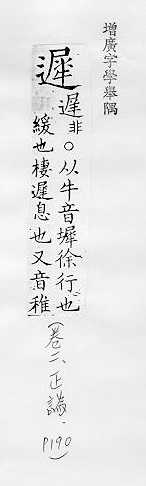 增廣字學舉隅
遲
遲非○从牛音墀徐行也
緩也棲遲息也又音稚
(卷二、正譌、P190)